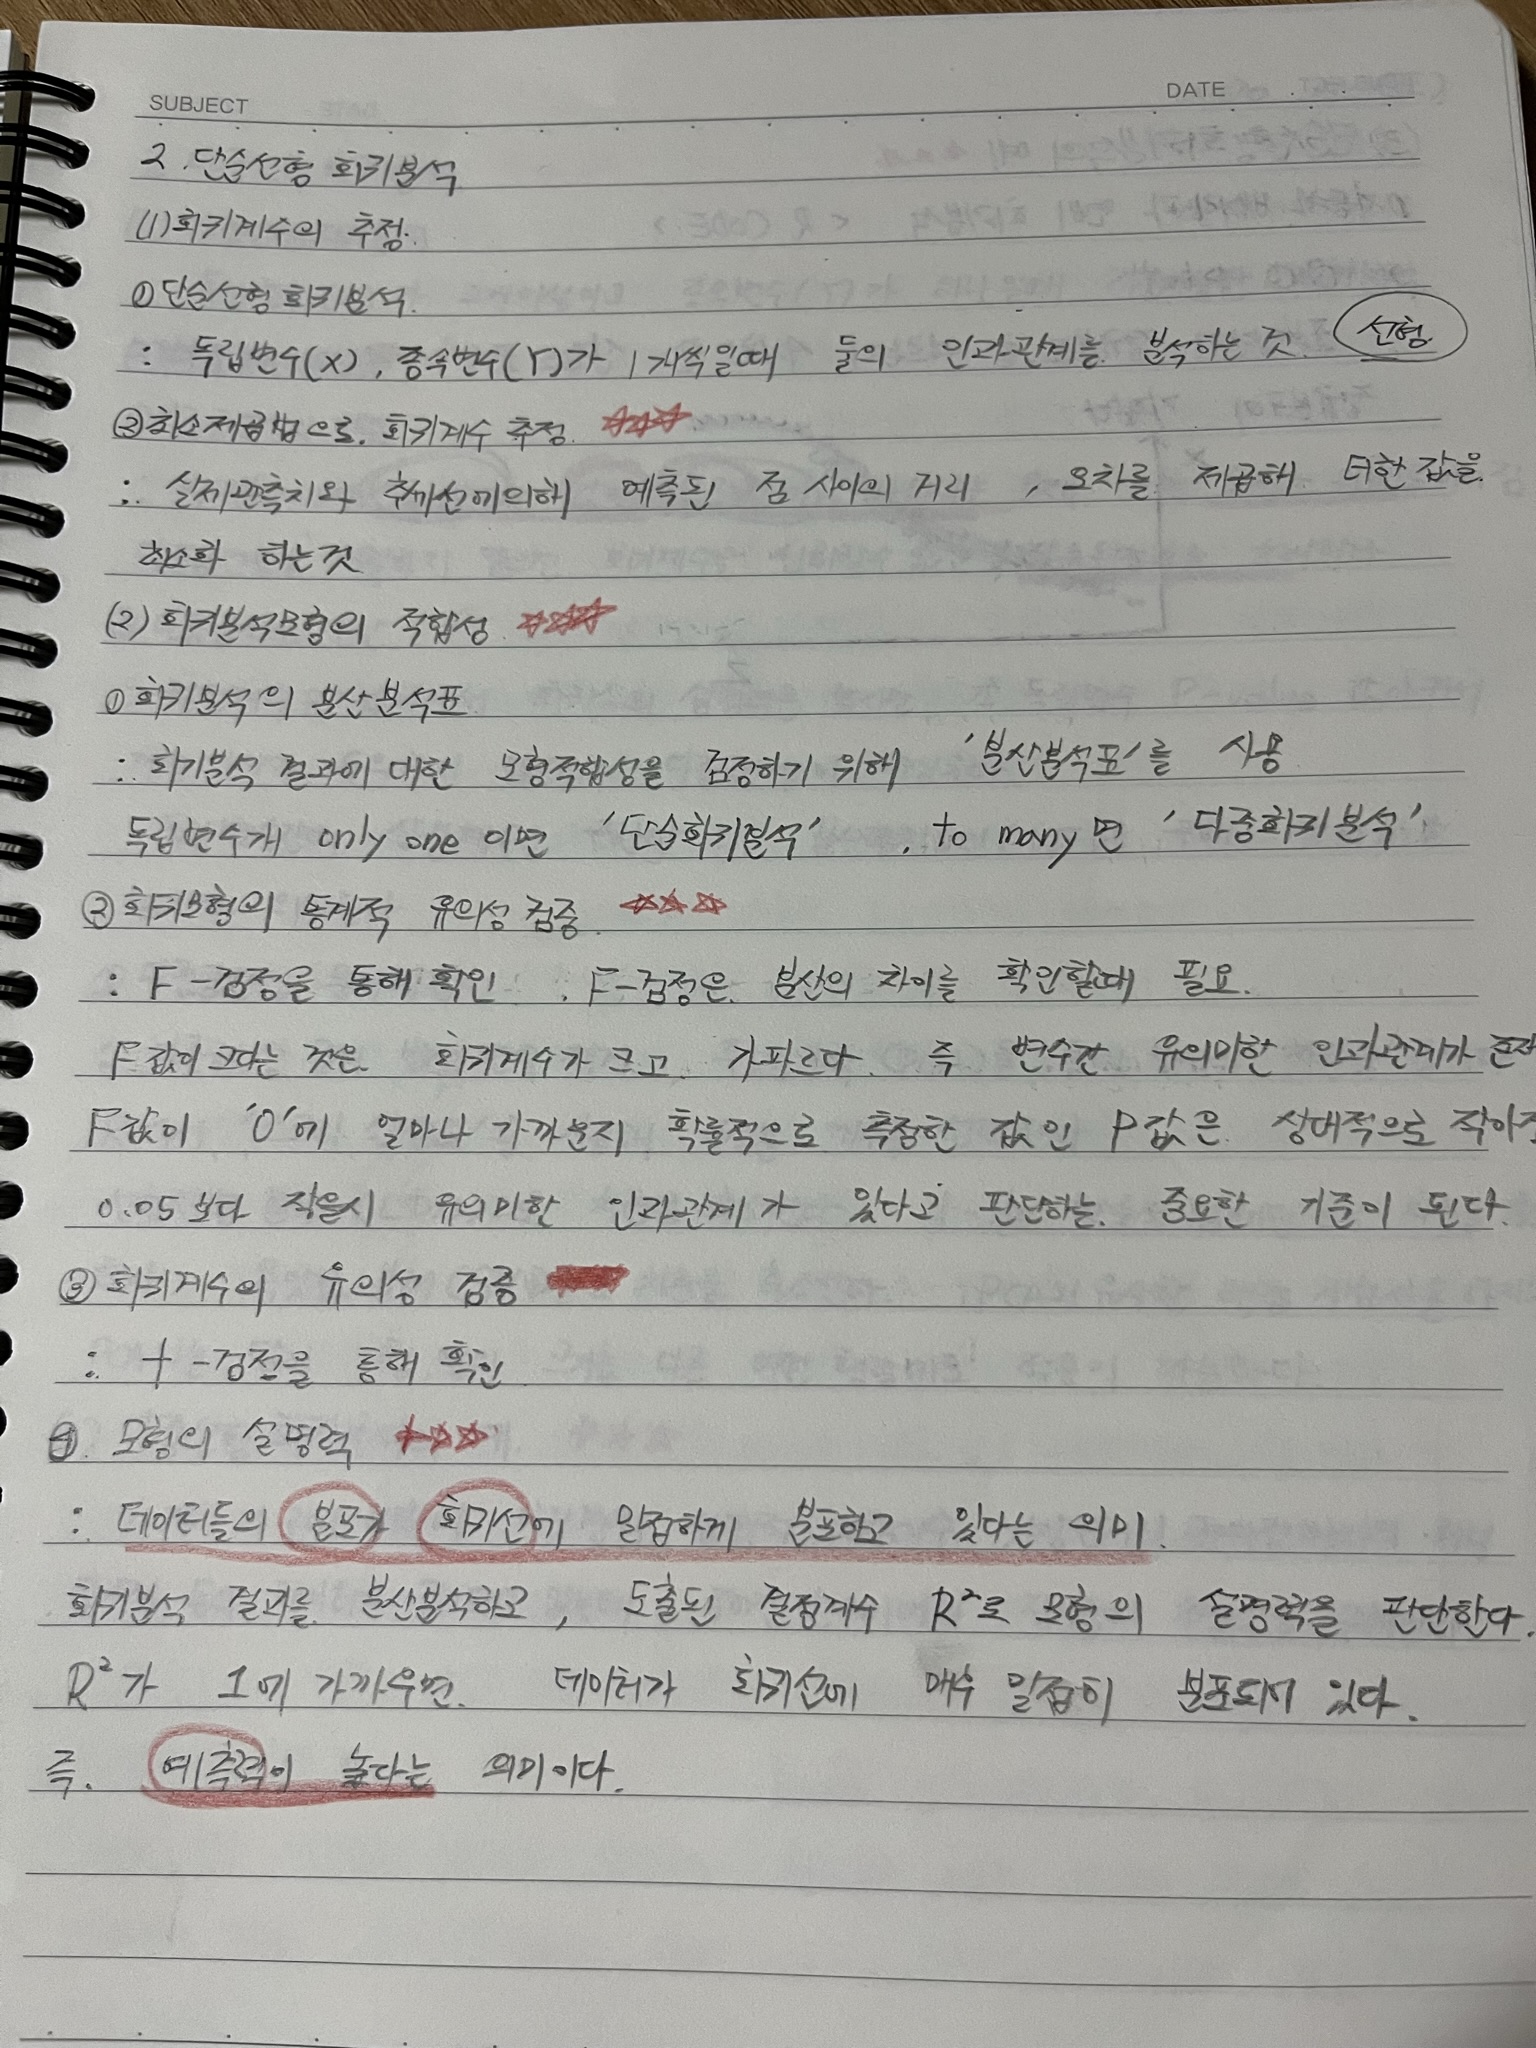 SUBJECT
DATE
2. 단순선형 회귀분석
(1) 회귀계수의 추정.
① 단순선형 회귀분석.
: 독립변수(X), 종속변수(Y)가 1개씩일때 둘의 인과관계를 분석하는 것. 선형
② 최소제곱법으로. 회귀계수 추정 ☆☆☆
: 실제관측치와 추세선에의해 예측된 점 사이의 거리, 오차를 제곱해 더한값을
최소화 하는것
(2) 회귀분석모형의 적합성 ☆☆☆
① 회귀분석의 분산분석표
: 회귀분석 결과에 대한 모형적합성을 검정하기 위해 '분산분석표'를 사용
독립변수가 only one 이면 '단순회귀분석', to many면 '다중회귀분석'
② 회귀모형의 통계적 유의성 검증 ☆☆☆
: F-검정을 통해 확인. F-검정은 분산의 차이를 확인할때 필요.
F값이 크다는 것은 회귀계수가 크고, 가파르다. 즉 변수간 유의미한 인과관계가 존재
F값이 '0'에 얼마나 가까운지 확률적으로 측정한 값인 P값은 상대적으로 작아져
0.05보다 작을시 유의미한 인과관계가 있다고 판단하는. 중요한 기준이 된다.
③ 회귀계수의 유의성 검증
: t-검정을 통해 확인
④. 모형의 설명력 ☆☆☆
: 데이터들의 분포가 회귀선에 밀접하게 분포하고 있다는 의미.
회귀분석 결과를 분산분석하고, 도출된 결정계수 R²로 모형의 설명력을 판단한다.
R²가 1에 가까우면. 데이터가 회귀선에 매우 밀접히 분포되어 있다.
즉. 예측력이 높다는 의미이다.